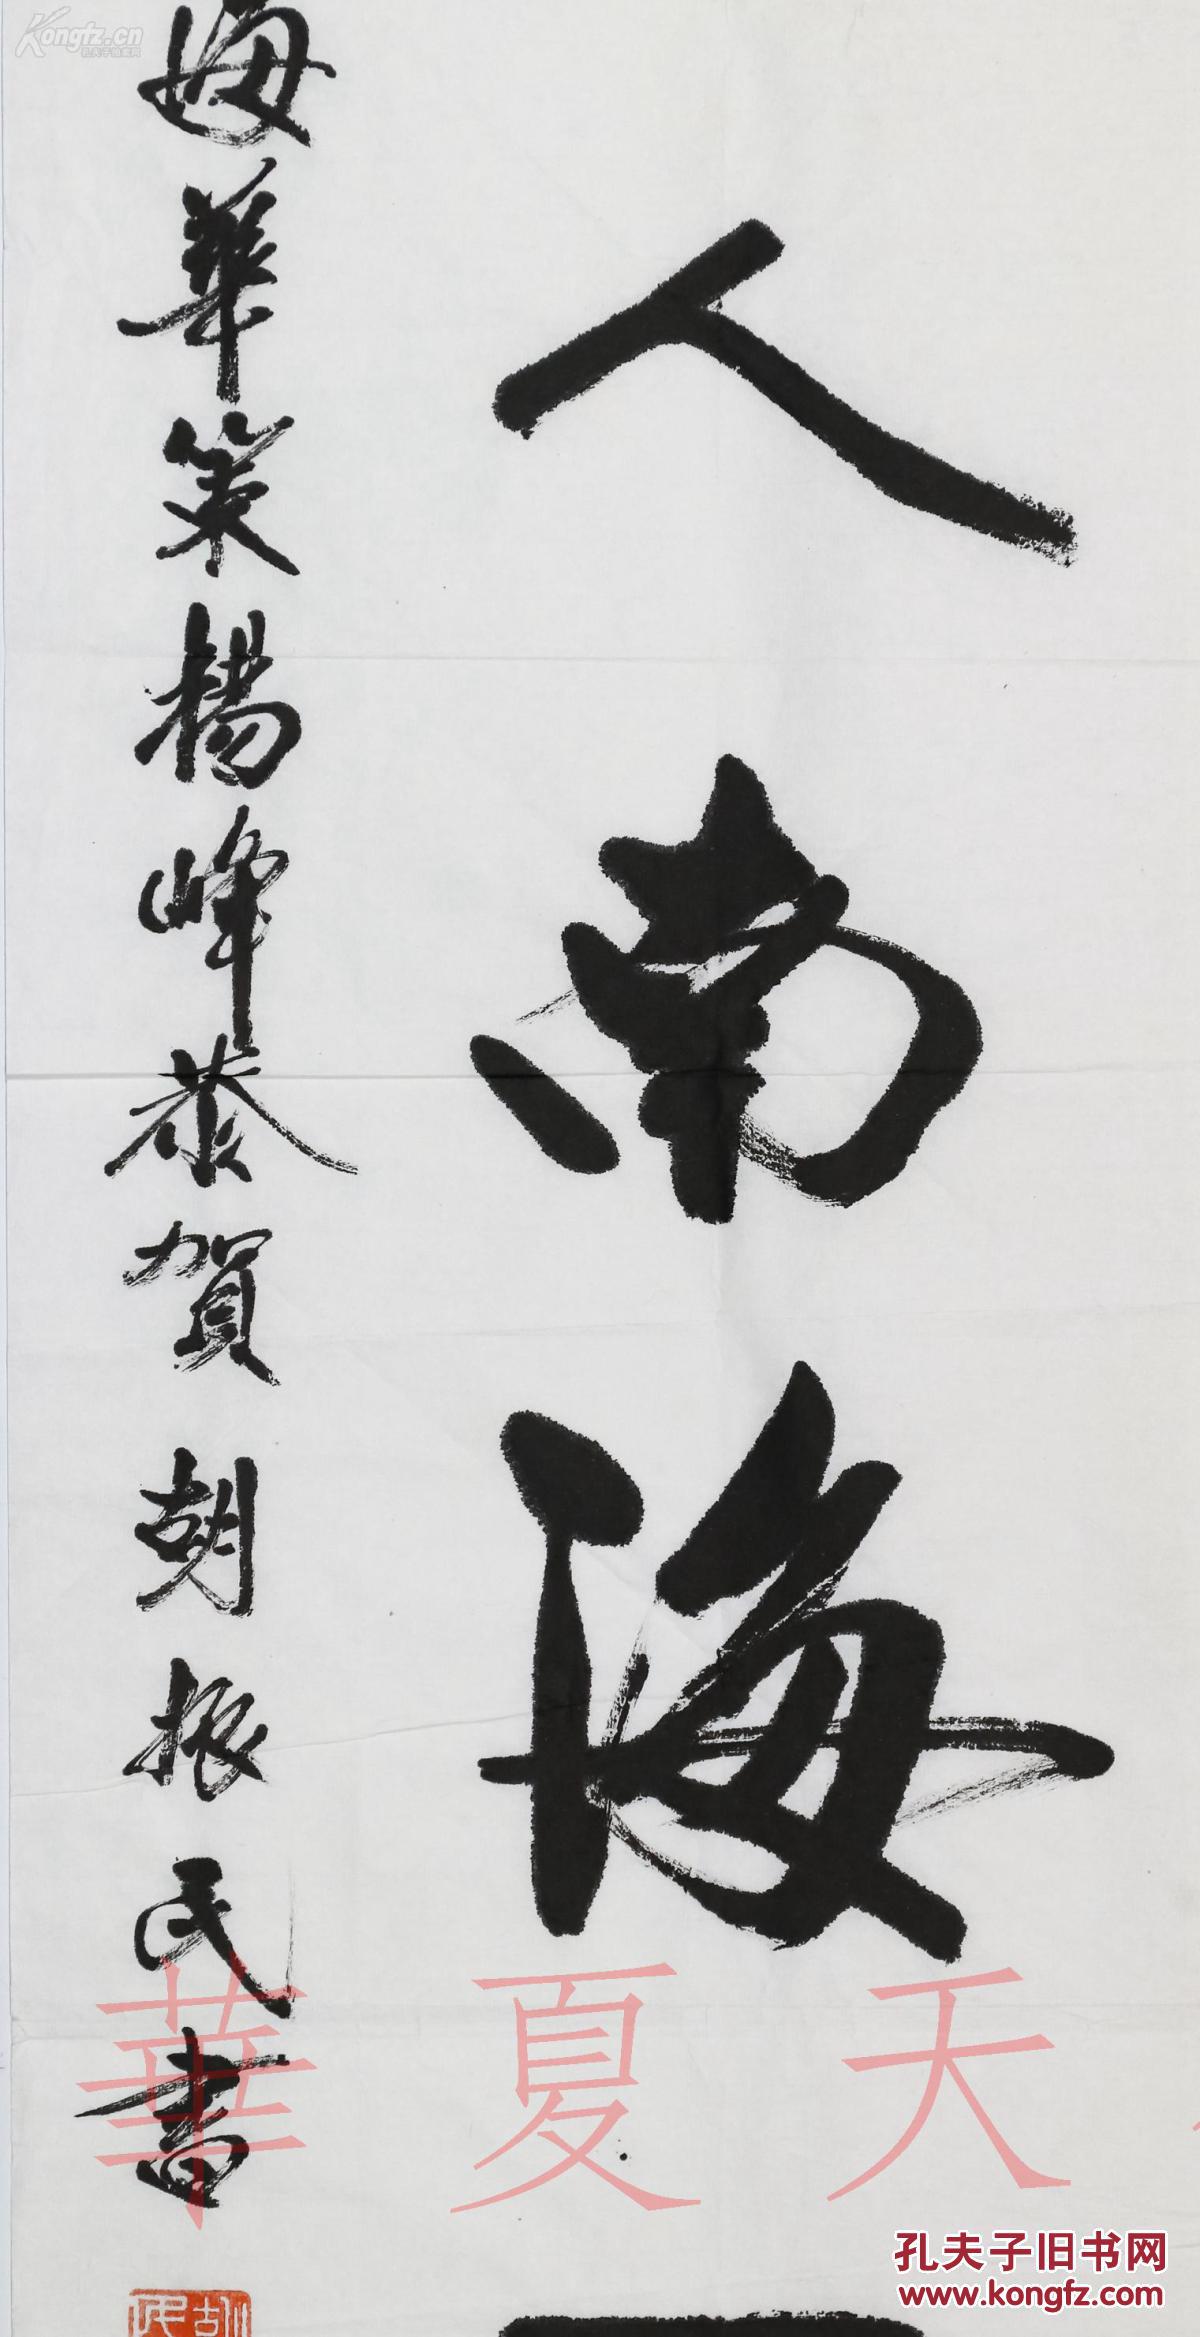 人南海
海華策楊峰恭賀胡振民書
華夏天
Kongfz.cn
孔夫子拍卖网
孔夫子旧书网
www.kongfz.com